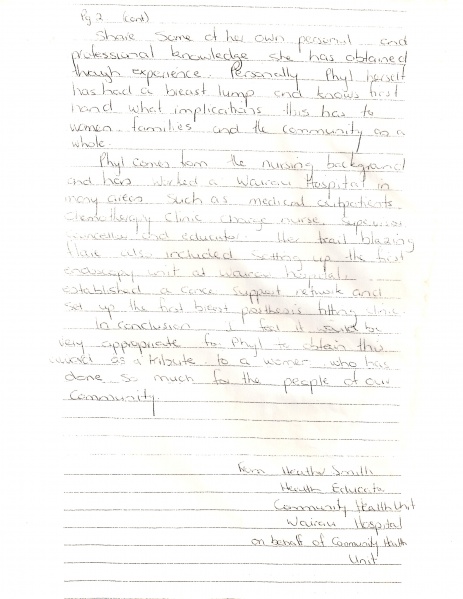 Pg 2 (cont)
Share some of her own personal and
professional knowledge she has obtained
though experience. Personally Phyl herself
has had a breast lump and knows first
hand what implications this has to
women families and the community as a
whole.
Phyl comes from the nursing background
and has worked a Wairau Hospital in
many areas such as medical outpatients
Chemotherapy Clinic charge nurse
and educator. Her trail blazing
flare also included setting up the first
endoscopy unit at Wairau hospital
established a cancer support network and
set up the first breast prosthesis fitting clinic.
In conclusion I feel it would be
very appropriate for Phyl to obtain this
award as a tribute to a women who has
done so much for the people of our
Community.
From Heather Smith
Health Educator
Community Health Unit
Wairau Hospital
on behalf of Community Health
Unit